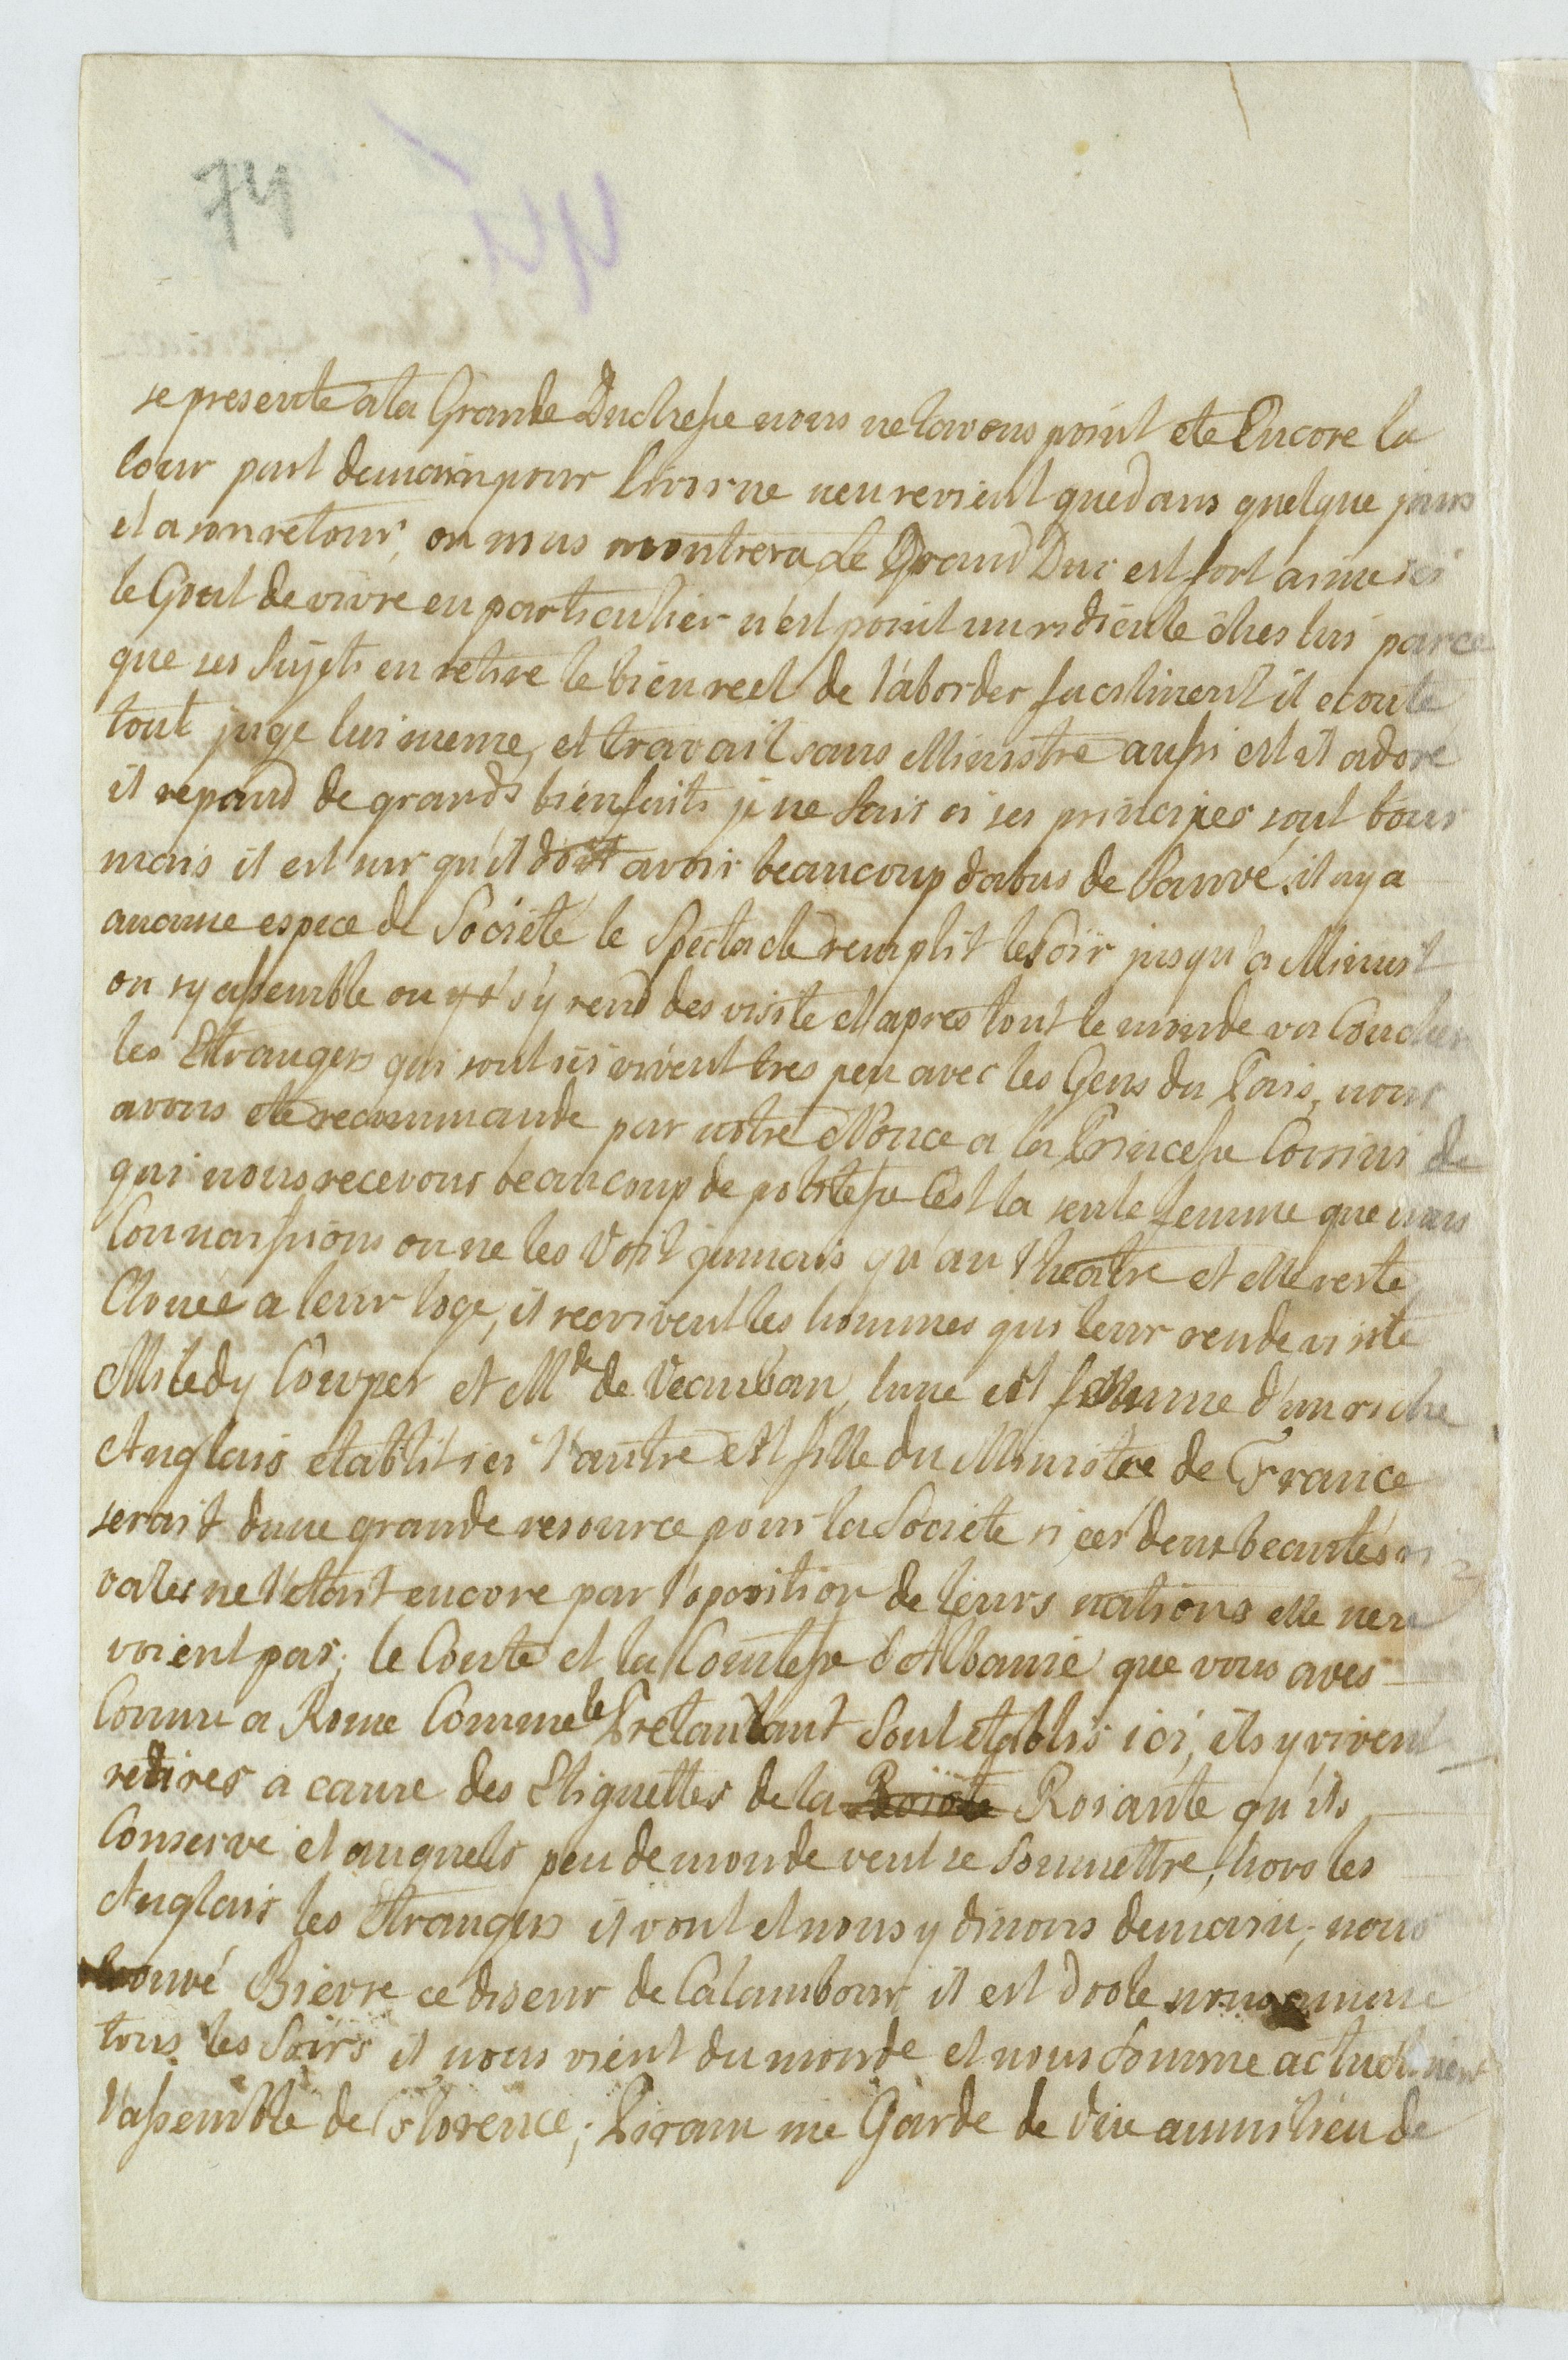 74
se presente a la Grande Duchesse nous ne lavons point ete Encore la
Cour part demain pour Livorne n'en revient que dans quelque jours
et a son retour, on nous montrera Le Grand Duc est fort aimé ici
le Gout de vivre en particulier n'est point un ridicule ches lui parce
que ses Sujets en retire le bien reel de l'aborder facilment il ecoute
tout juge lui meme, et travail sans Ministre aussi est il adore
il repand de grands bienfaits je ne sais si ses principes sont bons
mais il est sur qu'il doit avoir beaucoup d'abus de Sauvé, il ny a
aucune espece de Societé le Spectacle remplit le Soir jusqu'a Minuit
on sy assemble on s'y rend des visite et apres tout le monde va Coucher
les Etrangers qui sont ici vivent tres peu avec les Gens du Pais, nous
avons ete recommande par notre Nonce a la Princesse Corsini de
qui nous recevons beaucoup de politesse C'est la seule femme que nous
Connaissions on ne les Voit jamais qu'au Theatre et elle reste
Clouée a leur loge, il recoivent les hommes qui leur rende visite
Miledy Cowper et Mde de Veauban, lune est femme d'un riche
Anglais etablit ici l'autre est fille du Ministre de France
serait d'une grande resource pour la Societe si ces deux beautés ri
vales ne l'etait encore par l'oposition de leurs nations elle ne se
voient pas; le Conte et la Comtesse d'Albanie que vous aves
Connu a Rome Comme le Pretandant Sont etablis ici, ils y vivent
retires a cause des Etiquettes de la Roiauté qu'ils
Conserve et auquels peu de monde veut se Soumettre, hors les
Anglais les Etrangers il vont et nous y dinons demain; nous
trouvé Bievre ce diseur de Calambour il est drole nous amuse
tous les Soirs il nous vient du monde et nous Somme actuelment
l'assemblé de Florence; Piram me Garde de Vue au milieu de